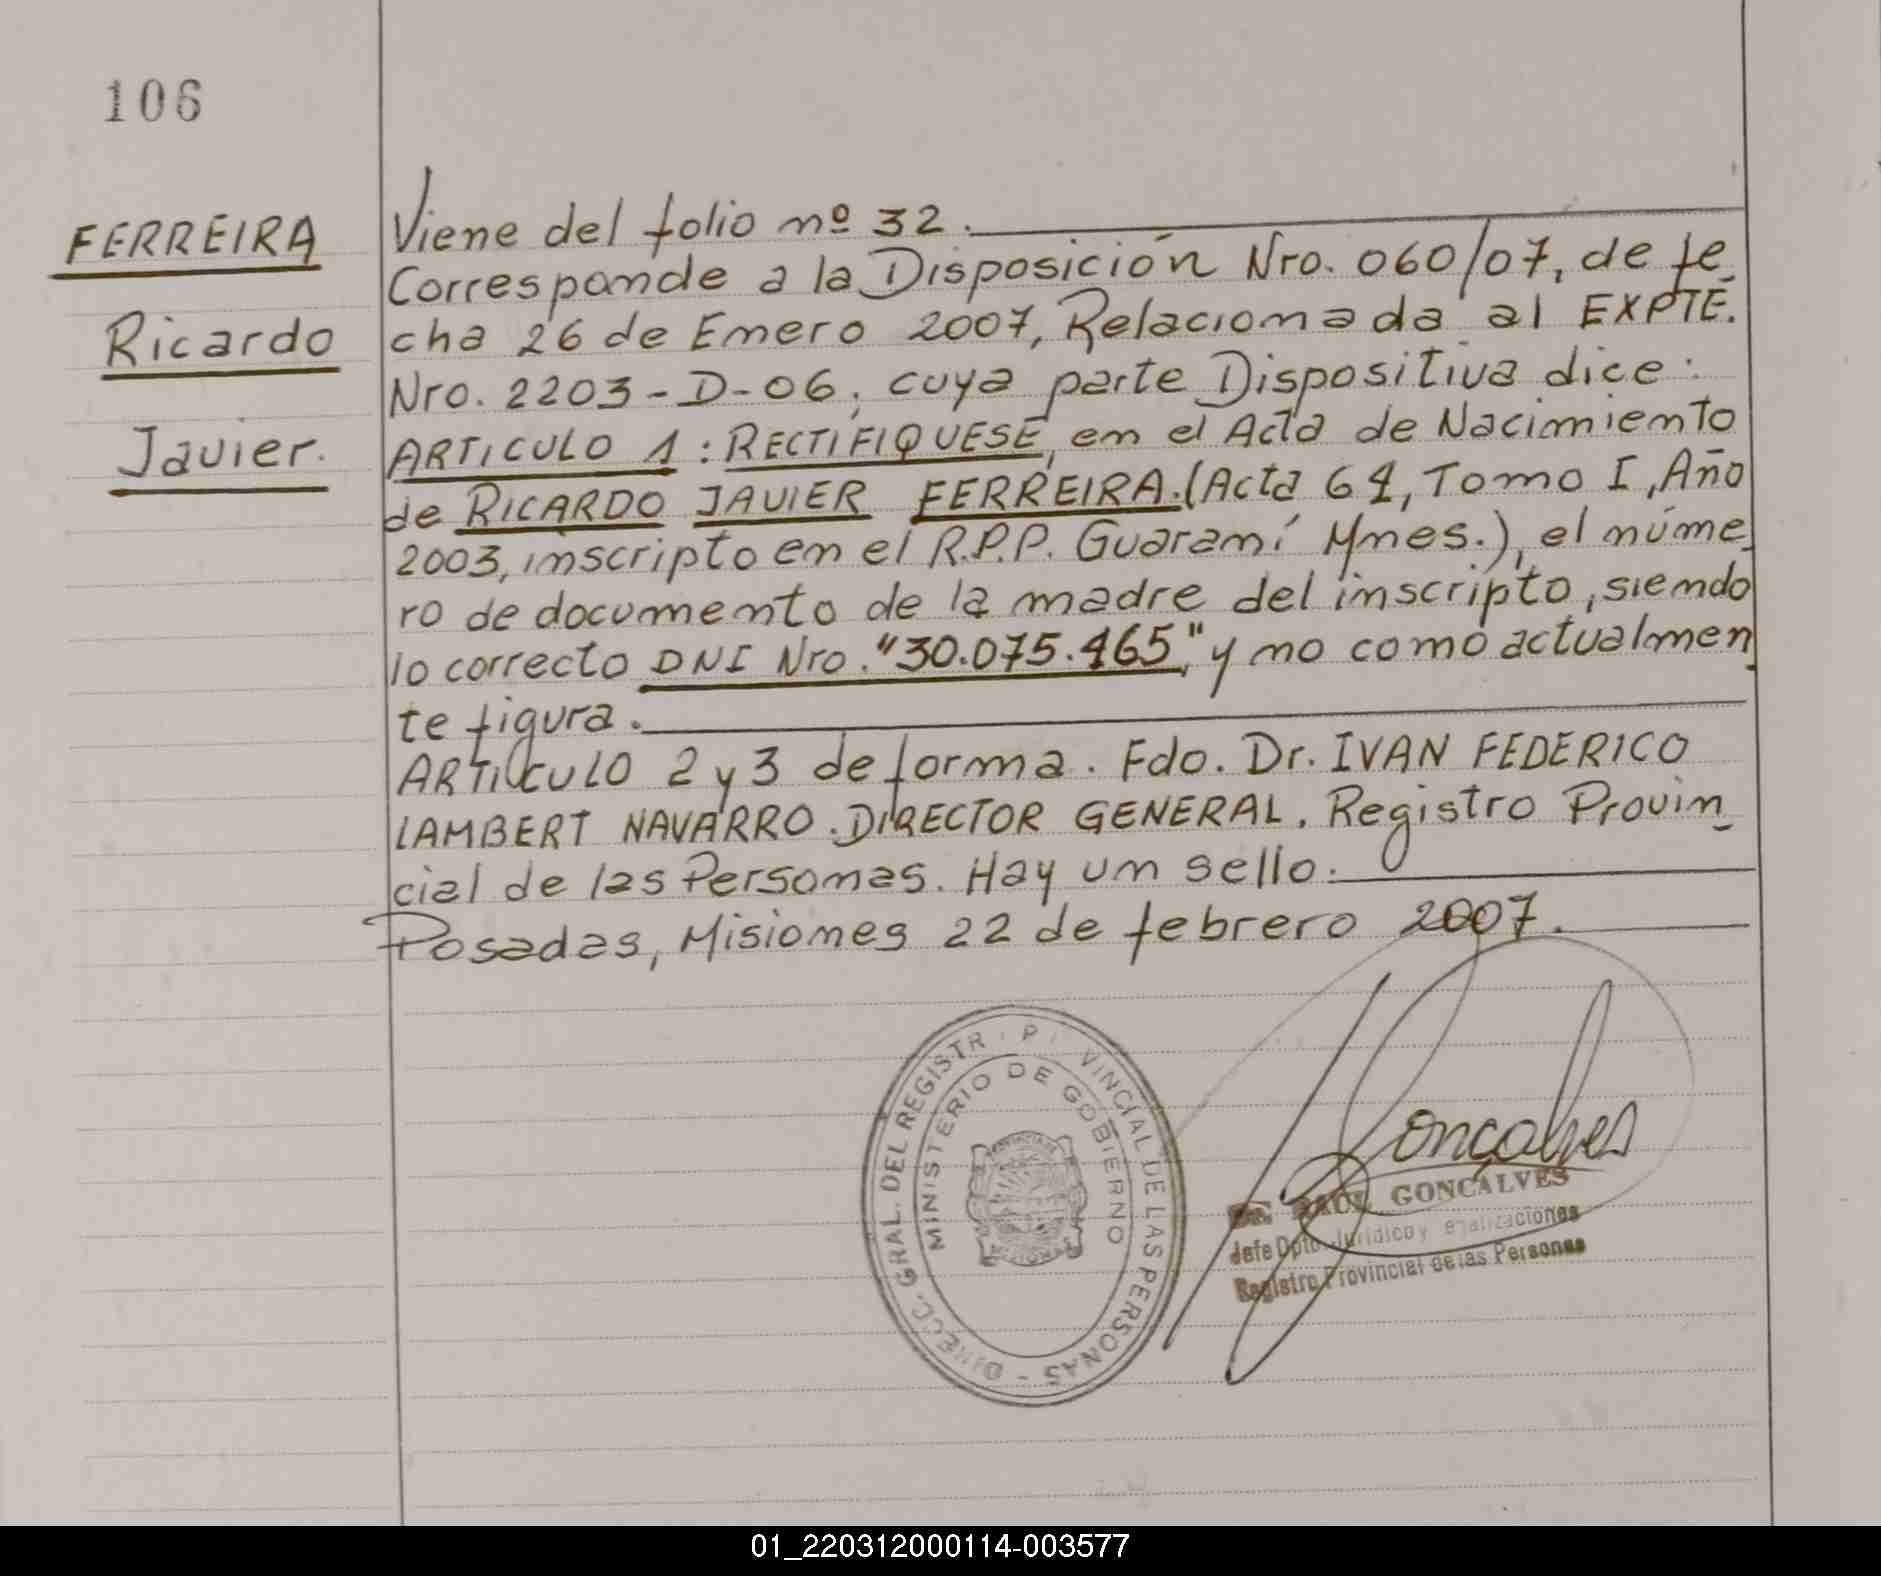 106
FERREIRA
Ricardo
Javier.
Viene del folio nº 32.
Corresponde a la Disposición Nro. 060/07, de fe
cha 26 de Enero 2007, Relacionada al EXPTE.
Nro. 2203-D-06, cuya parte Dispositiva dice:
ARTICULO 1: RECTIFIQUESE, en el Acta de Nacimiento
de RICARDO JAVIER FERREIRA. (Acta 64, Tomo I, Año
2003, inscripto en el R.P.P. Guaraní Mnes.), el núme
ro de documento de la madre del inscripto, siendo
lo correcto DNI Nro. "30.075.465", y no como actualmen
te figura.
ARTICULO 2 y 3 de forma. Fdo. Dr. IVAN FEDERICO
LAMBERT NAVARRO. DIRECTOR GENERAL. Registro Provin
cial de las Personas. Hay un sello.
Posadas, Misiones 22 de febrero 2007.
DIRECC. GRAL. DEL REGISTR P VINCIAL DE LAS PERSONAS -
MINISTERIO DE GOBIERNO
Gonçalves
Dr. RAUL GONÇALVES
Jefe Dpto. Jurídico y egalizaciones
Registro Provincial de las Personas
01_220312000114-003577